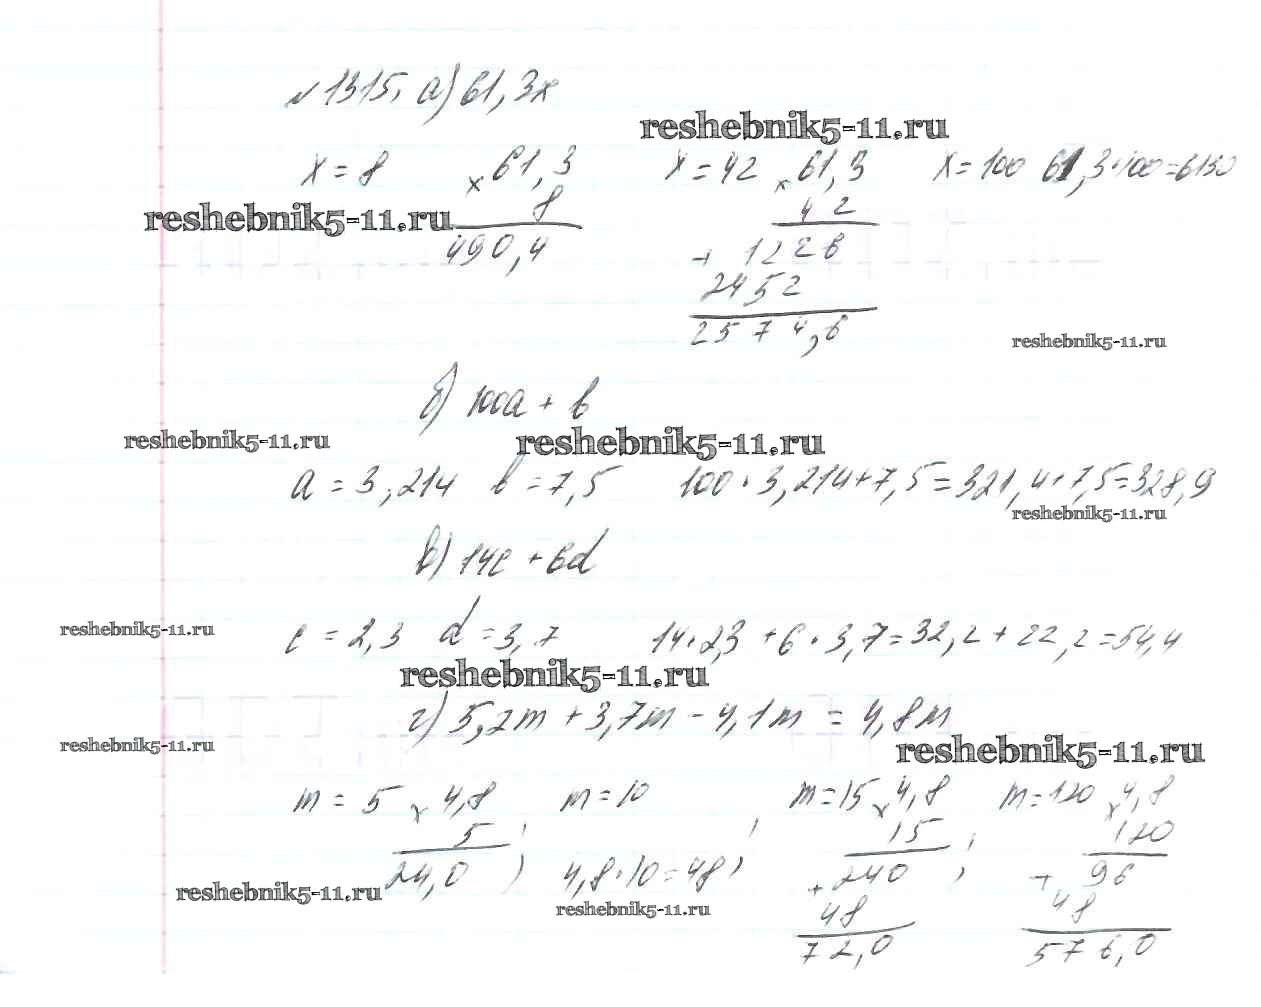 №1315. а) 61,3x
reshebnik5-11.ru
x = 8 × 61,3 x = 42 × 61,3 x = 100 61,3·100=6130
reshebnik5-11.ru 8 42
490,4 + 1226
2452
2574,6
reshebnik5-11.ru
б) 100a + b
reshebnik5-11.ru reshebnik5-11.ru
a = 3,214 b = 7,5 100·3,214+7,5=321,4+7,5=328,9
reshebnik5-11.ru
в) 14c + 6d
reshebnik5-11.ru
c = 2,3 d = 3,7 14·2,3 + 6·3,7=32,2+22,2=54,4
reshebnik5-11.ru
г) 5,2m + 3,7m - 4,1m = 4,8m
reshebnik5-11.ru reshebnik5-11.ru
m = 5 × 4,8 m = 10 m=15 × 4,8 m=120 × 4,8
5 ; 15 ; 120
24,0 4,8·10=48 + 240 + 96
reshebnik5-11.ru reshebnik5-11.ru 48 48
72,0 576,0